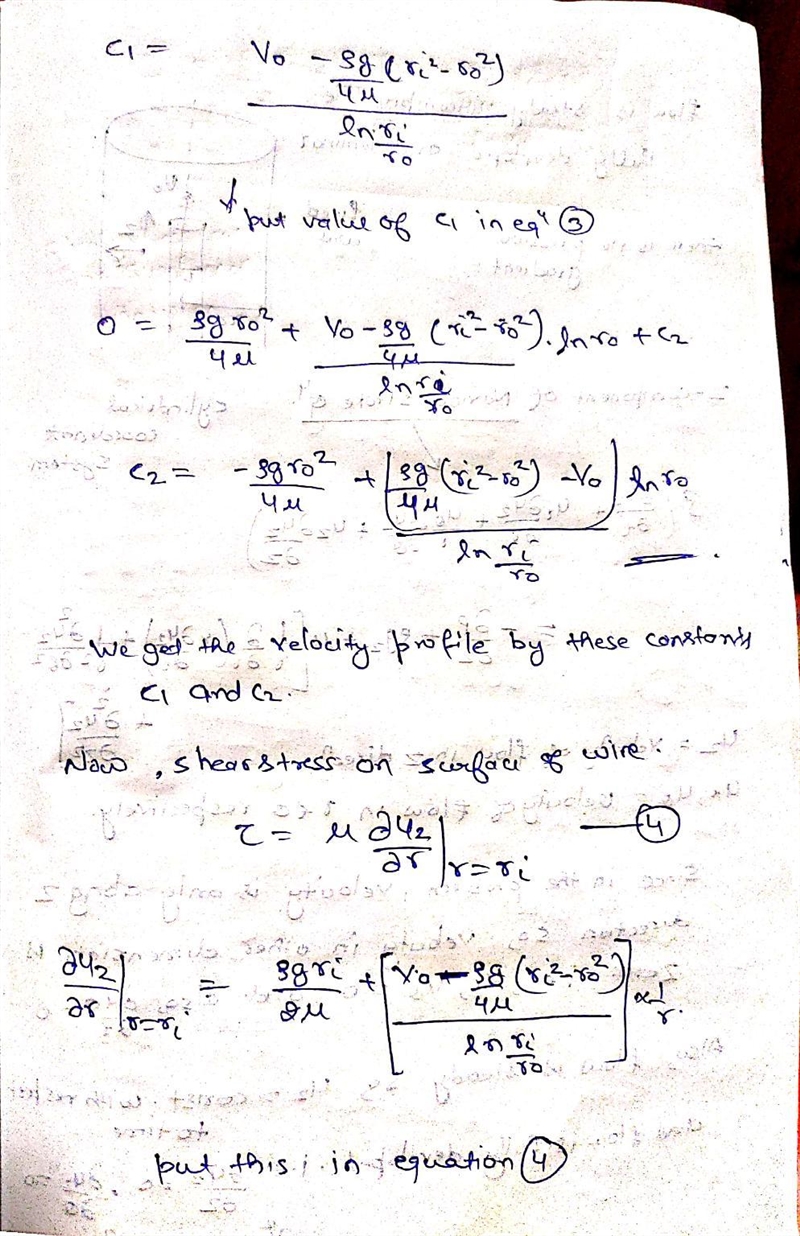 C1 = V0 - ρg/4μ (ri² - r0²) / ln ri/r0
put value of C1 in eqⁿ ③
0 = ρg r0²/4μ + V0 - ρg/4μ (ri² - r0²) / ln ri/r0 . ln r0 + C2
C2 = - ρg r0²/4μ + [ρg/4μ (ri² - r0²) - V0] / ln ri/r0 ln r0
We get the velocity profile by these constants
C1 and C2.
Now, shear stress on surface of wire.
τ = μ ∂uz/∂r |r=ri — ④
∂uz/∂r |r=ri = ρg ri/2μ + [V0 - ρg/4μ (ri² - r0²) / ln ri/r0] × 1/r.
put this in equation ④